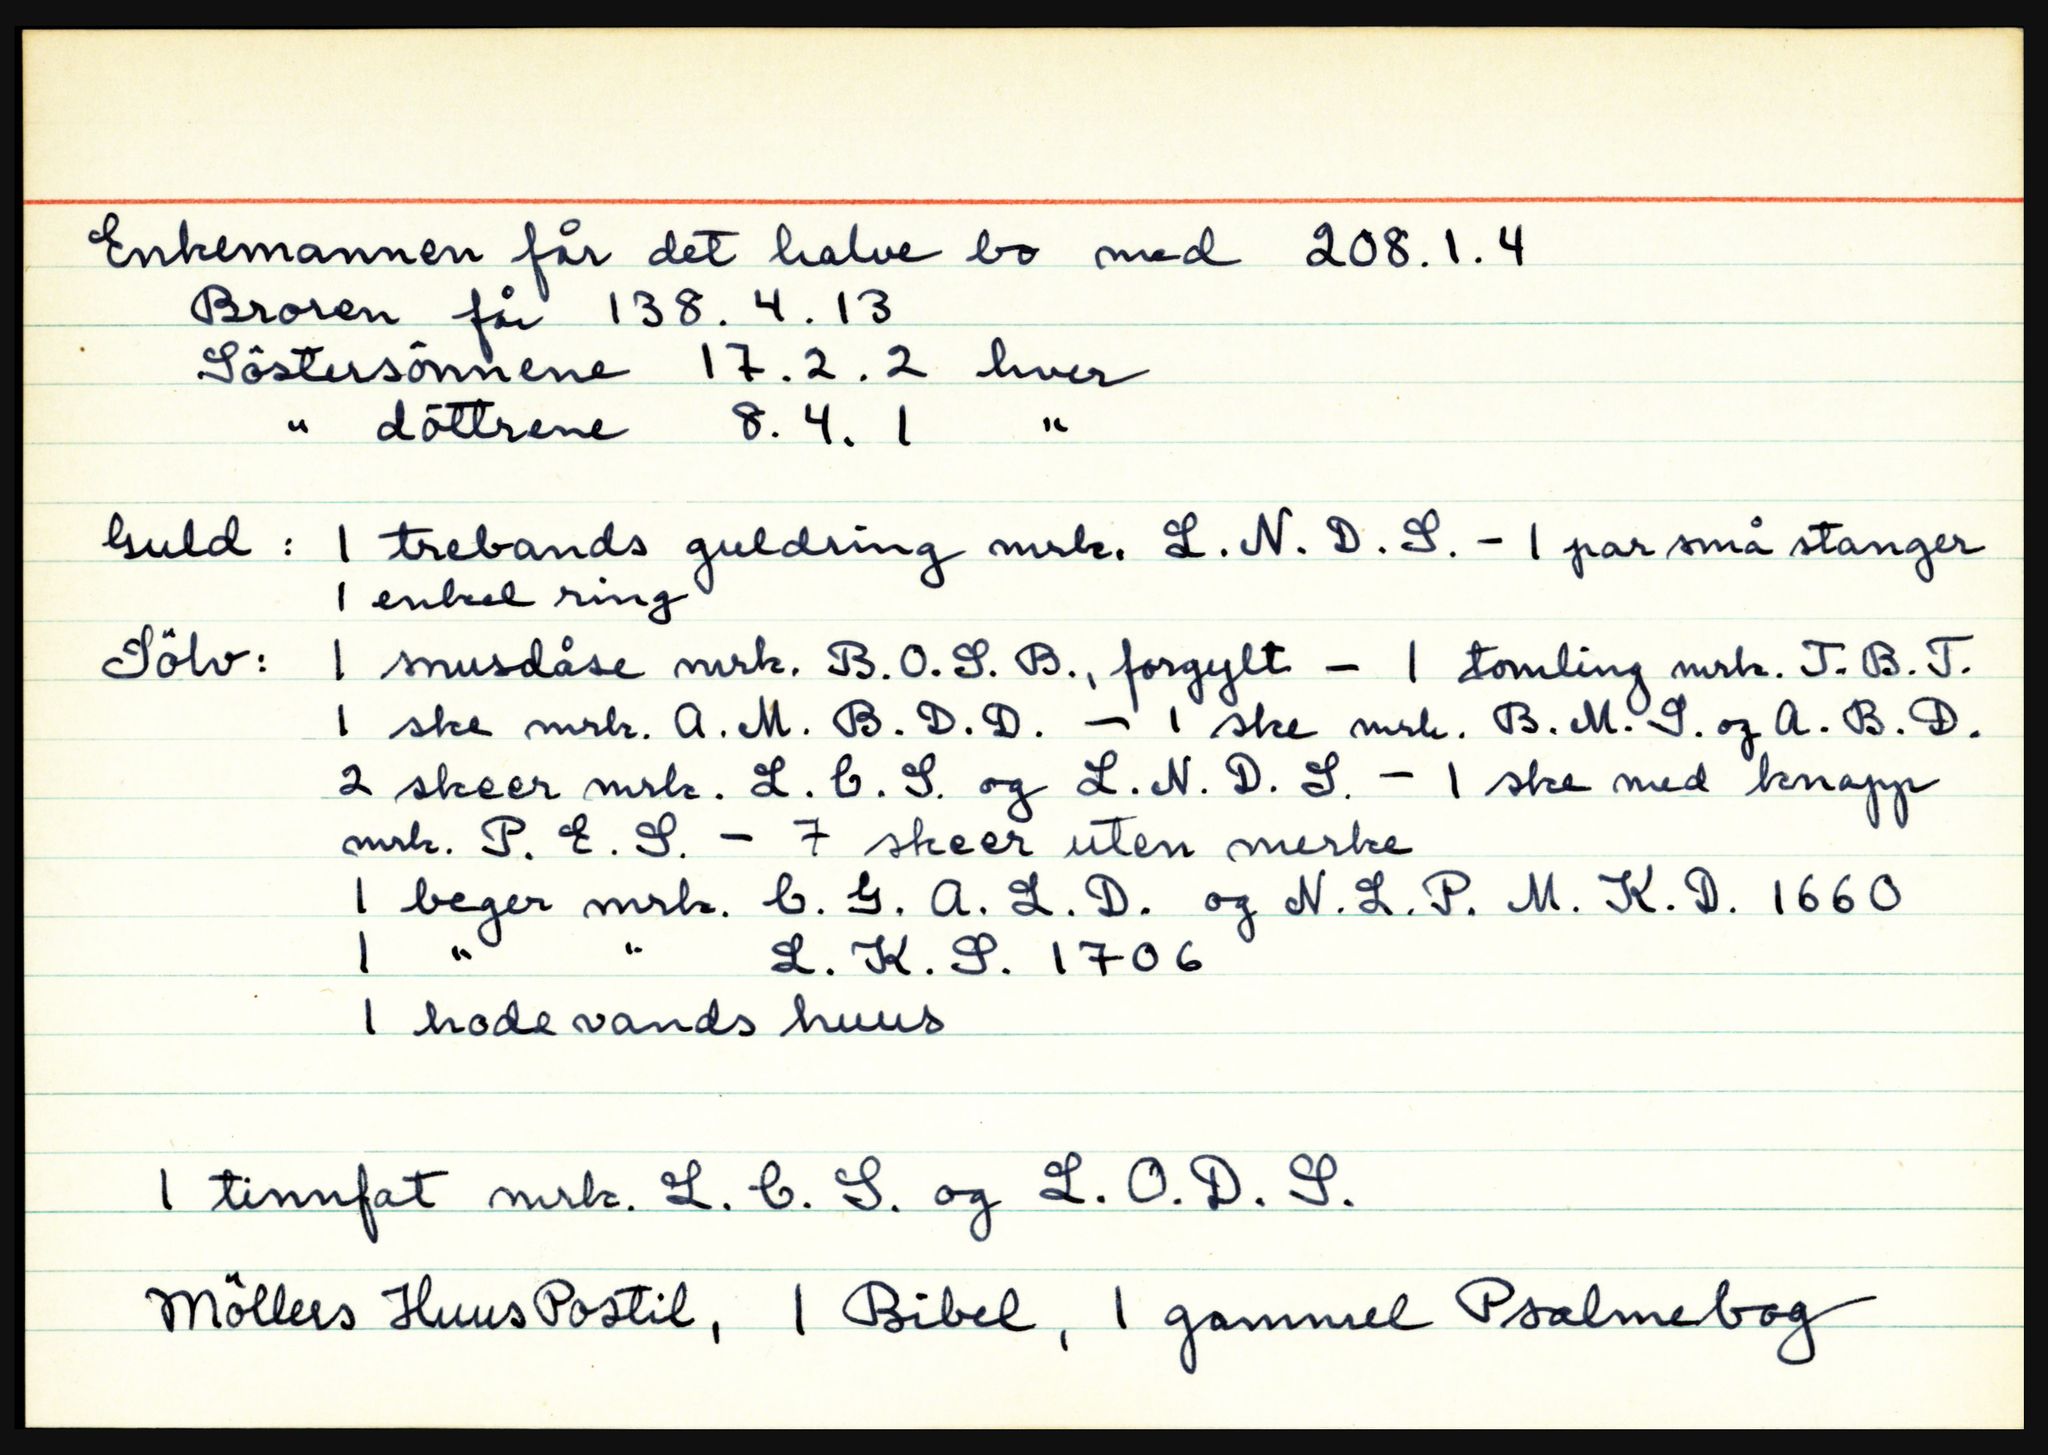 Enkemannen får det halve bo med 208.1.4
Broren får 138.4.13
Söstersönnene 17.2.2 hver
" döttrene 8.4.1 "
Guld: 1 trebands guldring mrk. L.N.D.S. - 1 par små stanger
1 enkel ring
Sölv: 1 snusdåse mrk. B.O.S.B., forgylt - 1 tomling mrk. T.B.T.
1 ske mrk. A.M.B.D.D. - 1 ske mrk. B.M.S. og A.B.D.
2 skeer mrk. L.C.S. og L.N.D.S. - 1 ske med knapp
mrk. P.E.S. - 7 skeer uten merke
1 beger mrk. C.G.A.L.D. og N.L.P.M.K.D. 1660
1 " " L.K.S. 1706
1 hodevands huus
1 tinnfat mrk. L.C.S. og L.O.D.S.
Möllers HuusPostil, 1 Bibel, 1 gammel Psalmebog